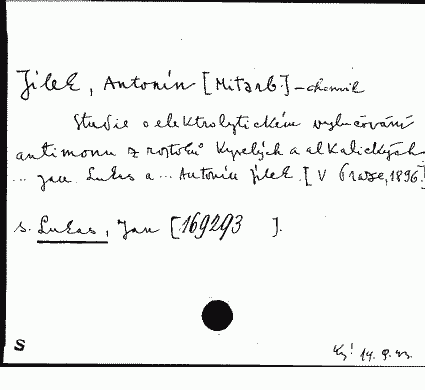 Jílek, Antonín [Mitarb.] - chemik
Studie o elektrolytickém vylučování
antimonu z roztoků kyselých a alkalických
... Jan Lukas a ... Antonín Jílek. [V Praze, 1896]
s. Lukas, Jan [169293 ].
S
14. 9.